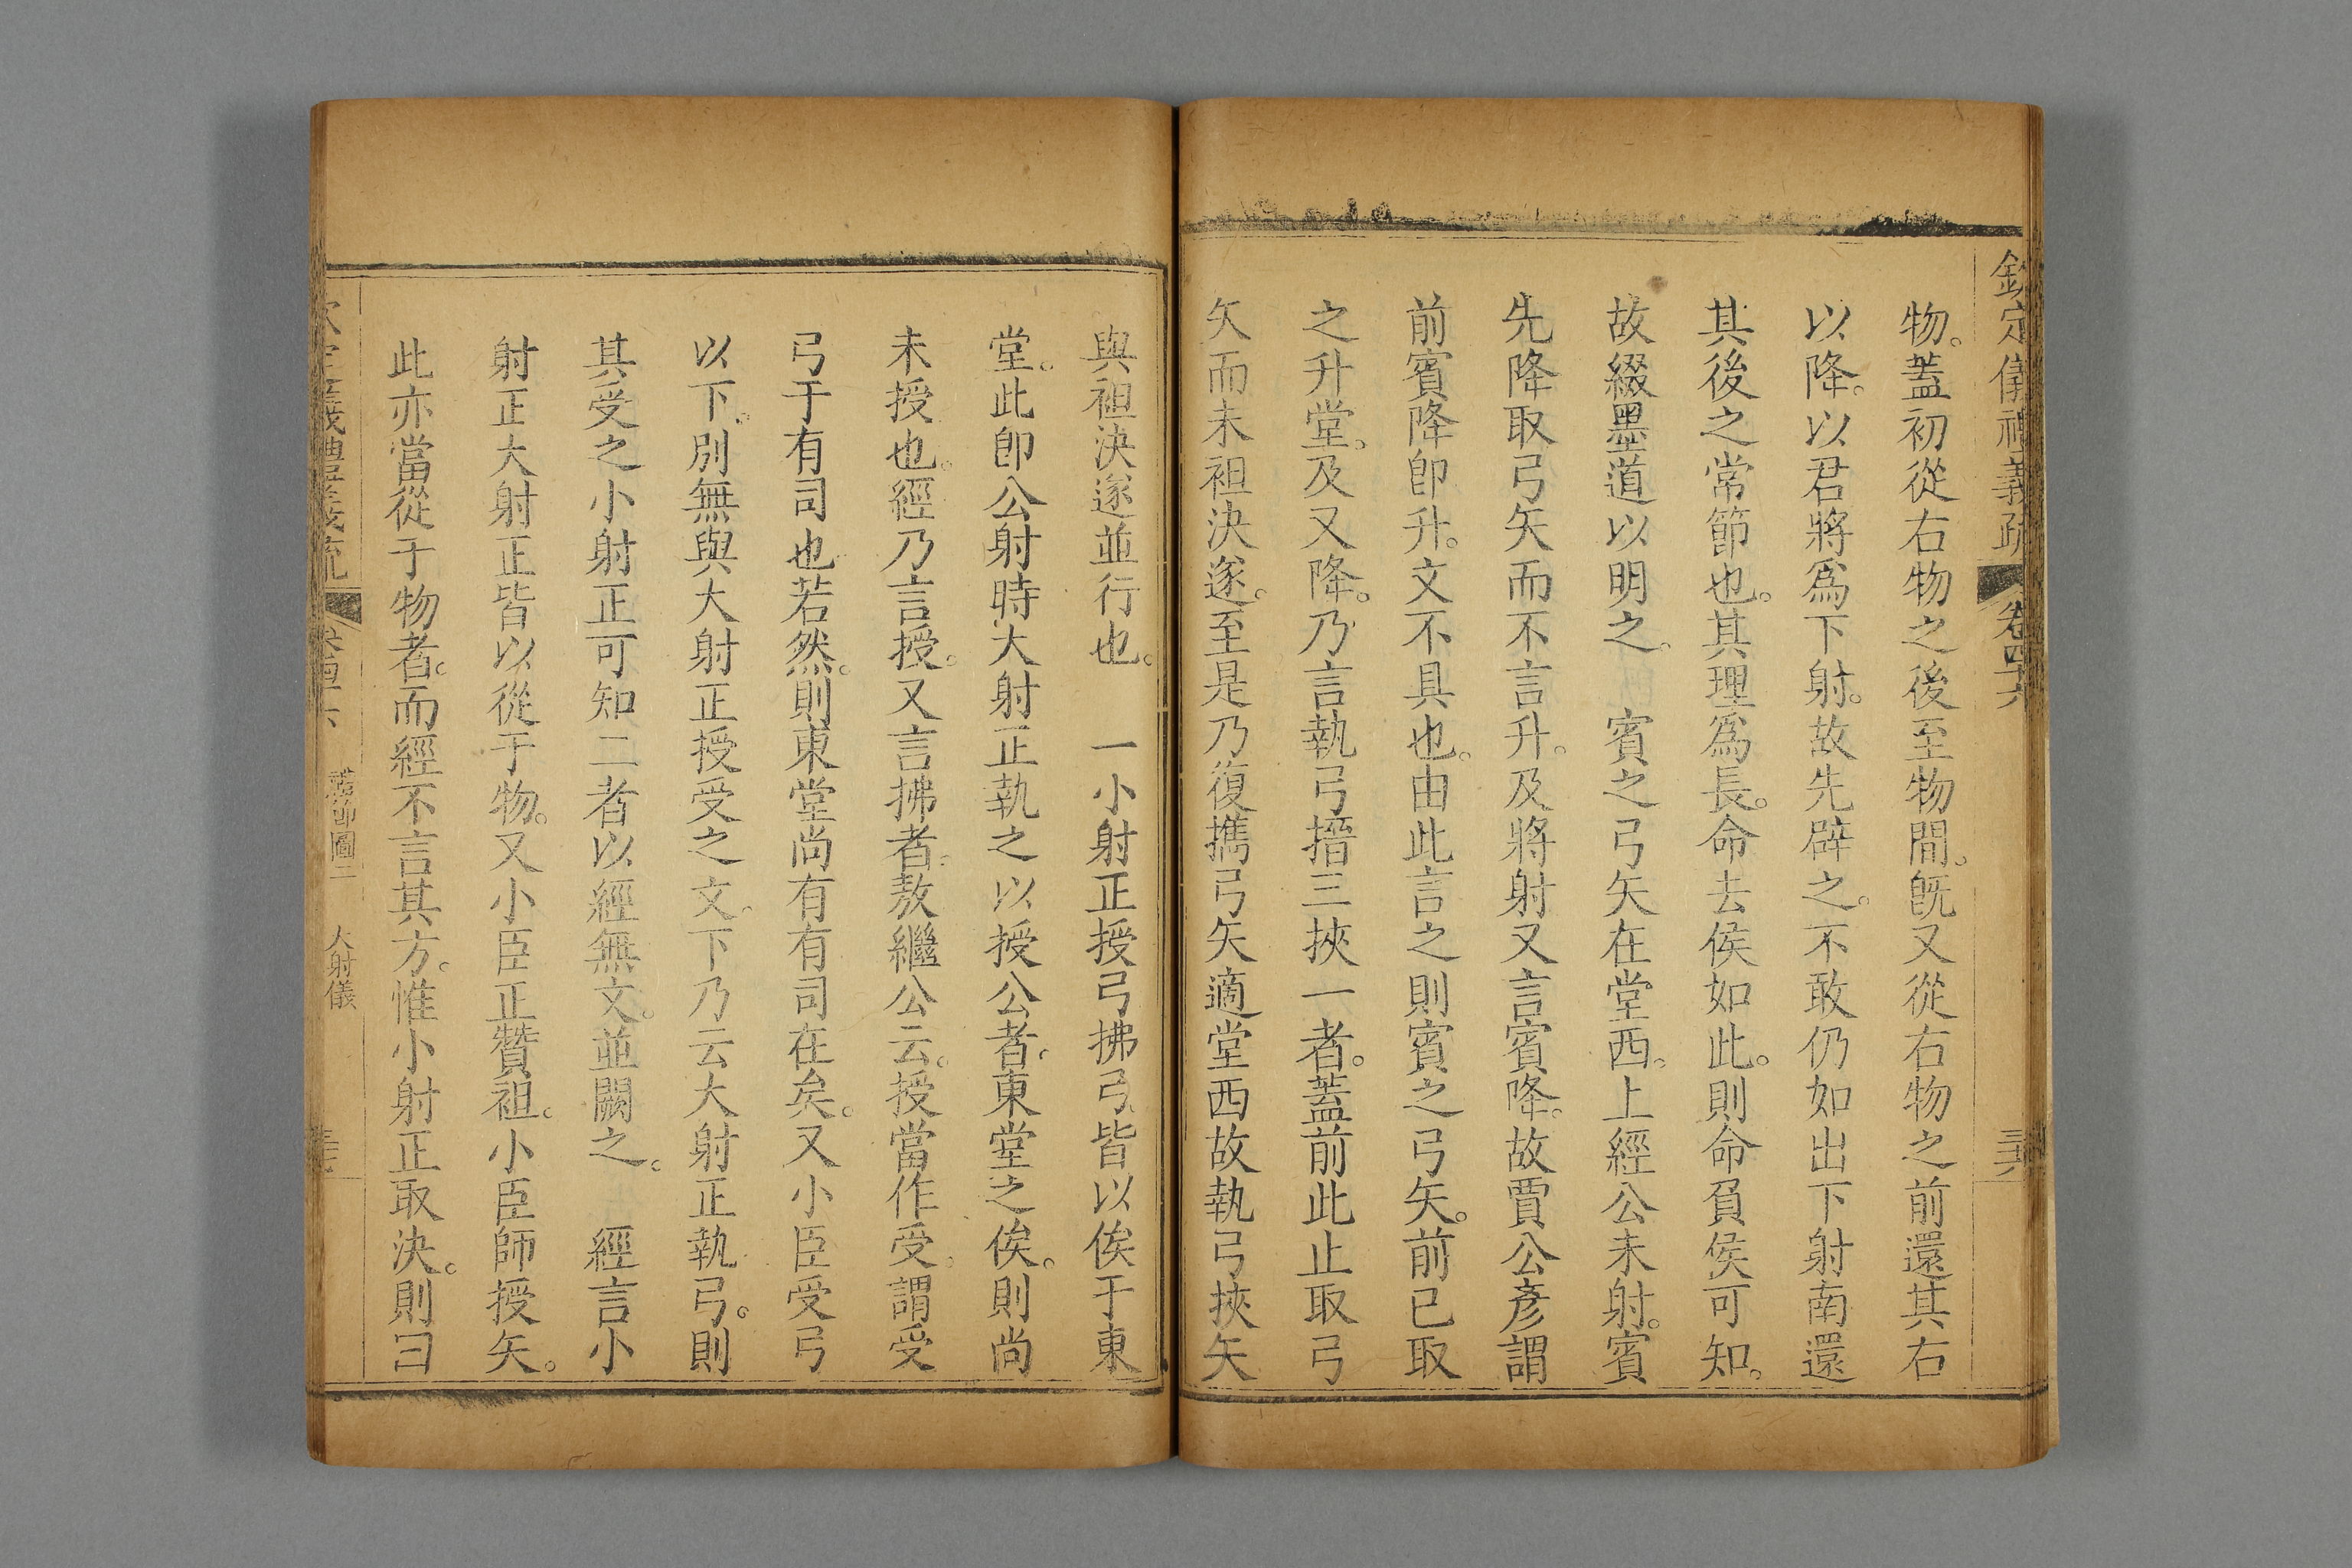 欽定儀禮義疏 卷四十六 三六
物。蓋初從右物之後至物間。旣又從右物之前還其右
以降。以君將爲下射。故先辟之。不敢仍如出下射南還
其後之常節也。其理爲長。命去侯如此。則命負侯可知。
故綴墨道以明之。 賓之弓矢在堂西。上經公未射。賓
先降取弓矢而不言升。及將射又言賓降。故賈公彥謂
前賓降卽升。文不具也。由此言之則賓之弓矢。前已取
之升堂。及又降。乃言執弓搢三挾一者。蓋前此止取弓
矢而未袒決遂。至是乃復攜弓矢適堂西故執弓挾矢
與袒決遂並行也。 一小射正授弓拂弓皆以俟于東
堂。此卽公射時大射正執之以授公者。東堂之俟。則尚
未授也。經乃言授。又言拂者。敖繼公云。授當作受。謂受
弓于有司也若然。則東堂尚有有司在矣。又小臣受弓
以下。別無與大射正授受之文。下乃云大射正執弓。則
其受之小射正可知二者以經無文。並闕之。 經言小
射正大射正皆以從于物。又小臣正贊袒。小臣師授矢。
此亦當從于物者。而經不言其方。惟小射正取決。則曰
節圖二 大射儀